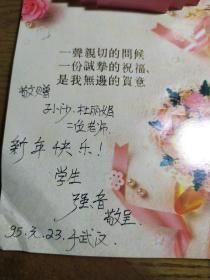 一聲親切的問候
一份誠摯的祝福、
是我無邊的賀意
敬贈
孙沙、杜丽娟
二位老师
新年快乐！
学生
强音
敬呈.
95.元.23.于武汉.